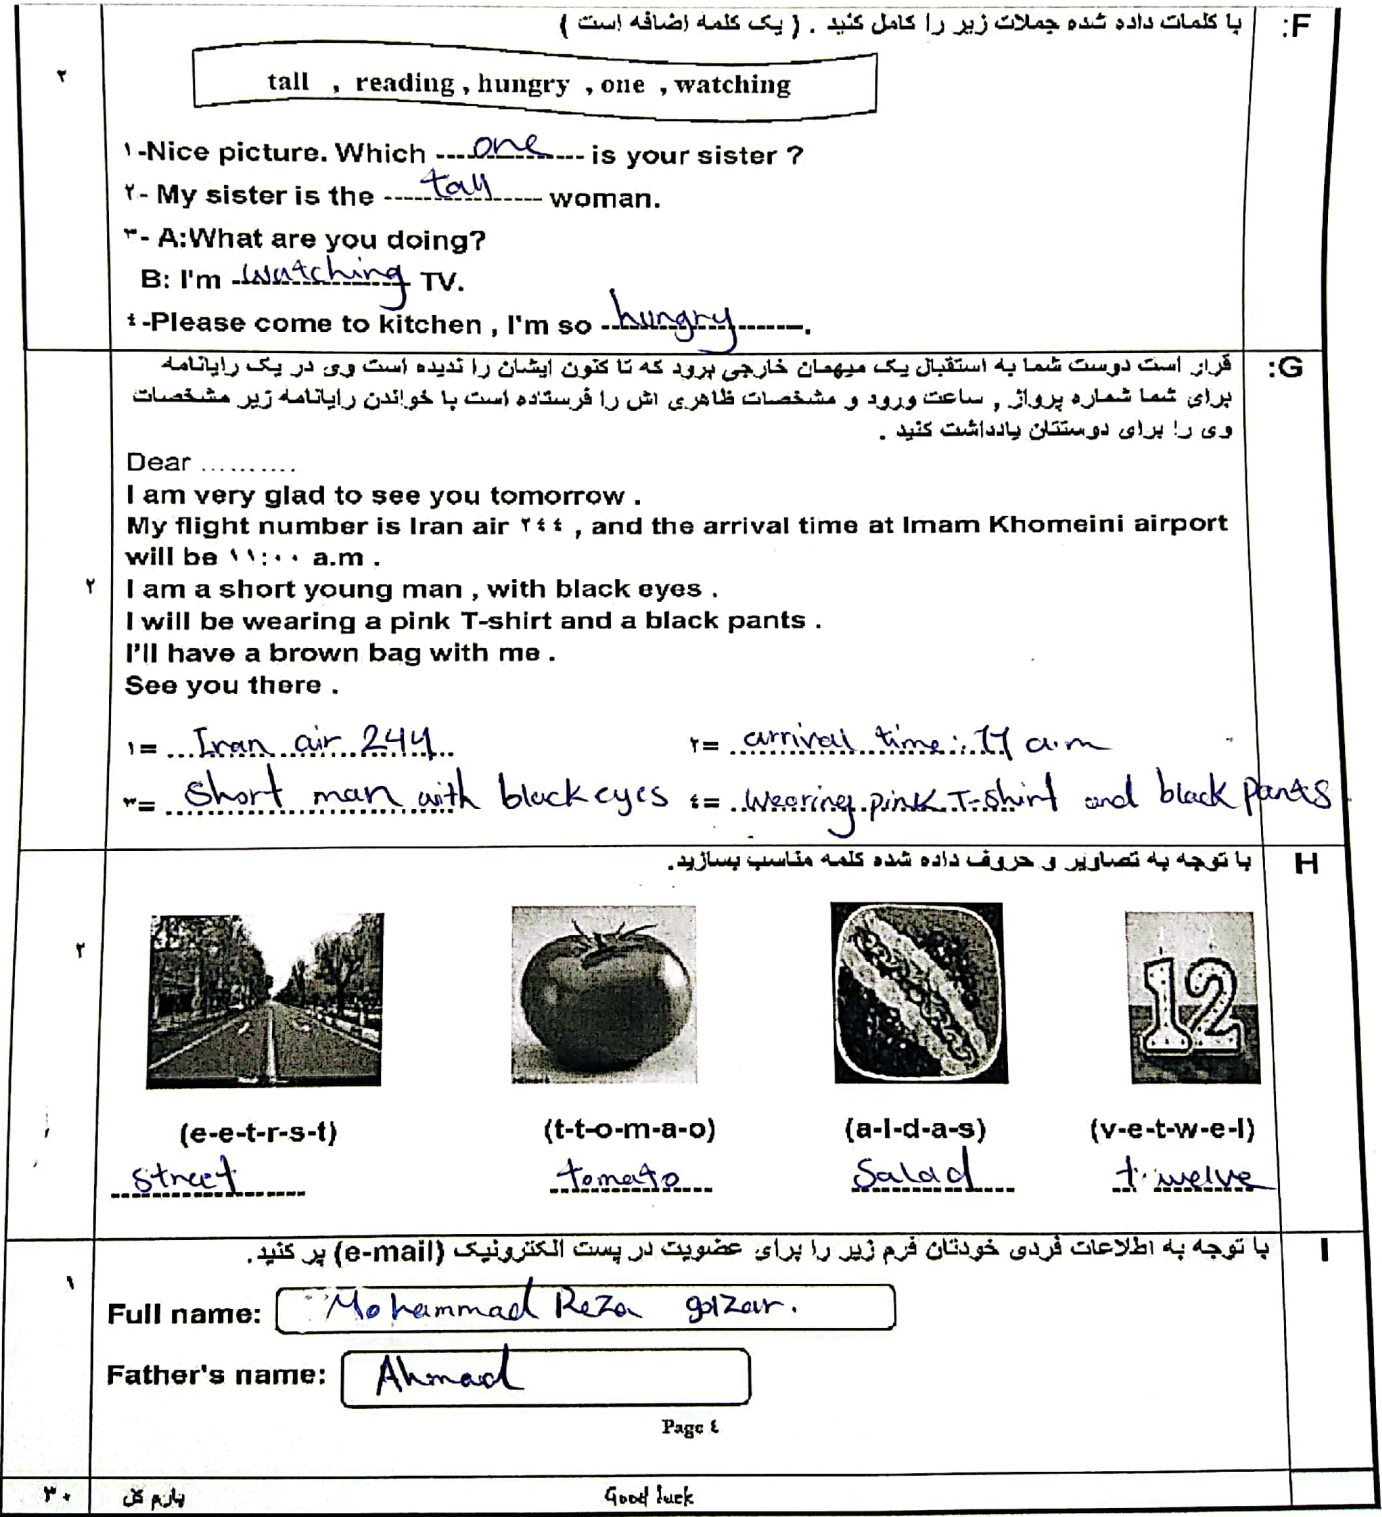 F: با کلمات داده شده جملات زیر را کامل کنید . ( یک کلمه اضافه است )
۲
tall , reading , hungry , one , watching
۱-Nice picture. Which one is your sister ?
۲- My sister is the tall woman.
۳- A:What are you doing?
B: I'm watching TV.
٤-Please come to kitchen , I'm so hungry.
G: قرار است دوست شما به استقبال یک میهمان خارجی برود که تا کنون ایشان را ندیده است وی در یک رایانامه
برای شما شماره پرواز , ساعت ورود و مشخصات ظاهری اش را فرستاده است با خواندن رایانامه زیر مشخصات
وی را برای دوستتان یادداشت کنید .
Dear ..........
I am very glad to see you tomorrow .
My flight number is Iran air ۲٤٤ , and the arrival time at Imam Khomeini airport
will be ۱۱:۰۰ a.m .
۲
I am a short young man , with black eyes .
I will be wearing a pink T-shirt and a black pants .
I'll have a brown bag with me .
See you there .
۱= Iran air 244 ۲= arrival time: 11 a.m
۳= short man with black eyes ٤= wearing pink T-shirt and black pants
H با توجه به تصاویر و حروف داده شده کلمه مناسب بسازید.
۲
12
(e-e-t-r-s-t) (t-t-o-m-a-o) (a-l-d-a-s) (v-e-t-w-e-l)
street tomato Salad twelve
I با توجه به اطلاعات فردی خودتان فرم زیر را برای عضویت در پست الکترونیک (e-mail) پر کنید.
۱
Full name: Mohammad Reza golzar.
Father's name: Ahmad
Page ٤
۳۰ بارم کل Good luck